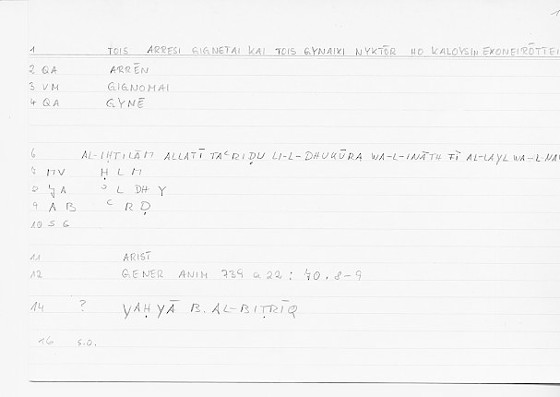 1 TOIS ARRESI GIGNETAI KAI TOIS GYNAIXI NYKTŌR HO KALOYSIN EXONEIRŌTTEI
2 QA ARRĒN
3 VM GIGNOMAI
4 QA GYNĒ
6 AL-IḤTILĀM ALLATĪ TAʿRIḌU LI-L-DHUKŪRA WA-L-INĀTH FĪ AL-LAYL WA-L-NA
MV Ḥ L M
A ʾ L DH Y
9 AB ʿ R Ḍ
10 SG
11 ARIST
12 GENER ANIM 739 a 22 : 70.8-9
14 ? YAḤYĀ B. AL-BIṬRĪQ
16 s.o.